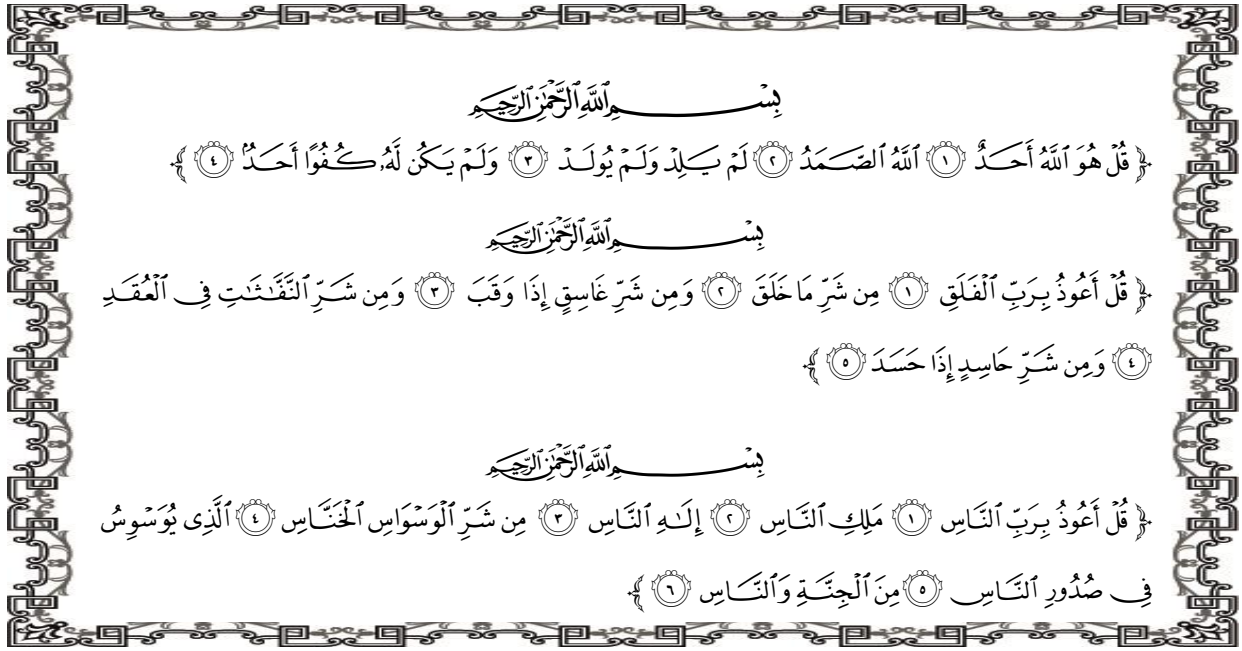 بِسْمِ ٱللَّهِ ٱلرَّحْمَٰنِ ٱلرَّحِيمِ
﴿ قُلْ هُوَ ٱللَّهُ أَحَدٌ ١ ٱللَّهُ ٱلصَّمَدُ ٢ لَمْ يَلِدْ وَلَمْ يُولَدْ ٣ وَلَمْ يَكُن لَّهُۥ كُفُوًا أَحَدٌۢ ٤ ﴾
بِسْمِ ٱللَّهِ ٱلرَّحْمَٰنِ ٱلرَّحِيمِ
﴿ قُلْ أَعُوذُ بِرَبِّ ٱلْفَلَقِ ١ مِن شَرِّ مَا خَلَقَ ٢ وَمِن شَرِّ غَاسِقٍ إِذَا وَقَبَ ٣ وَمِن شَرِّ ٱلنَّفَّٰثَٰتِ فِى ٱلْعُقَدِ
٤ وَمِن شَرِّ حَاسِدٍ إِذَا حَسَدَ ٥ ﴾
بِسْمِ ٱللَّهِ ٱلرَّحْمَٰنِ ٱلرَّحِيمِ
﴿ قُلْ أَعُوذُ بِرَبِّ ٱلنَّاسِ ١ مَلِكِ ٱلنَّاسِ ٢ إِلَٰهِ ٱلنَّاسِ ٣ مِن شَرِّ ٱلْوَسْوَاسِ ٱلْخَنَّاسِ ٤ ٱلَّذِى يُوَسْوِسُ
فِى صُدُورِ ٱلنَّاسِ ٥ مِنَ ٱلْجِنَّةِ وَٱلنَّاسِ ٦ ﴾